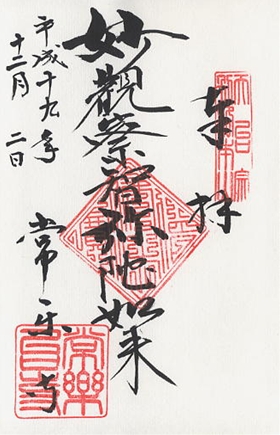 奉拝
妙觀察智弥陀如来
平成十九年
十二月二日
常楽寺
常樂
自寺